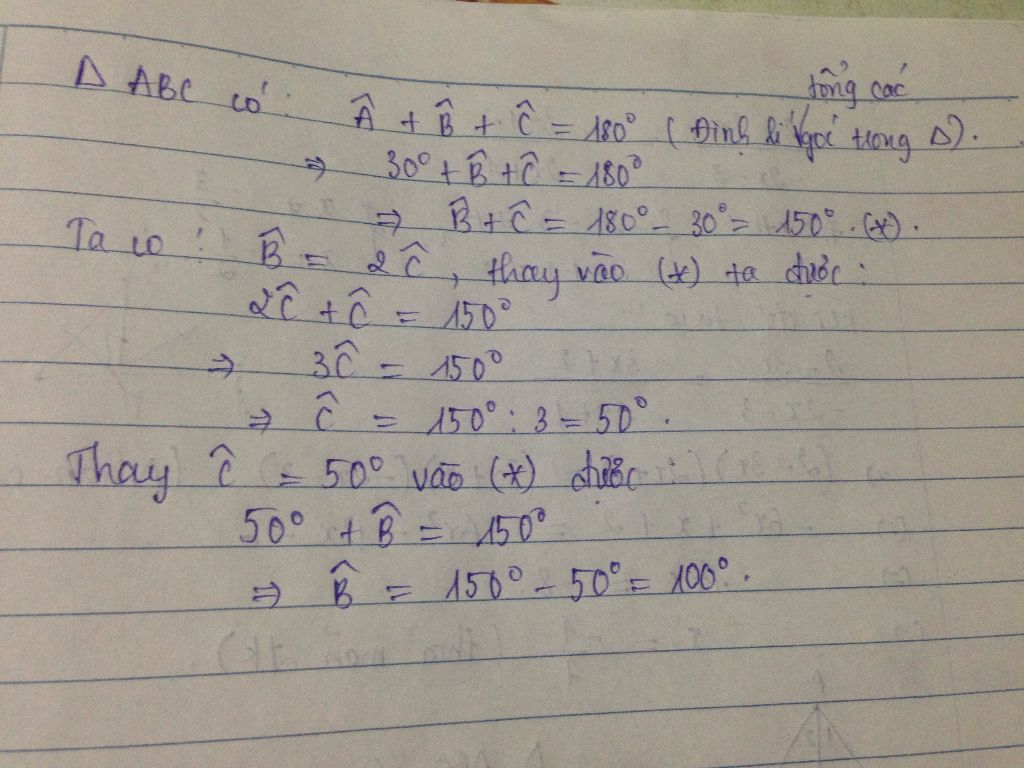 Δ ABC có: Â + B̂ + Ĉ = 180° (Định lí tổng các góc trong Δ).
⇒ 30° + B̂ + Ĉ = 180°
⇒ B̂ + Ĉ = 180° - 30° = 150°. (*).
Ta có: B̂ = 2Ĉ, thay vào (*) ta được:
2Ĉ + Ĉ = 150°
⇒ 3Ĉ = 150°
⇒ Ĉ = 150° : 3 = 50°.
Thay Ĉ = 50° vào (*) được
50° + B̂ = 150°
⇒ B̂ = 150° - 50° = 100°.